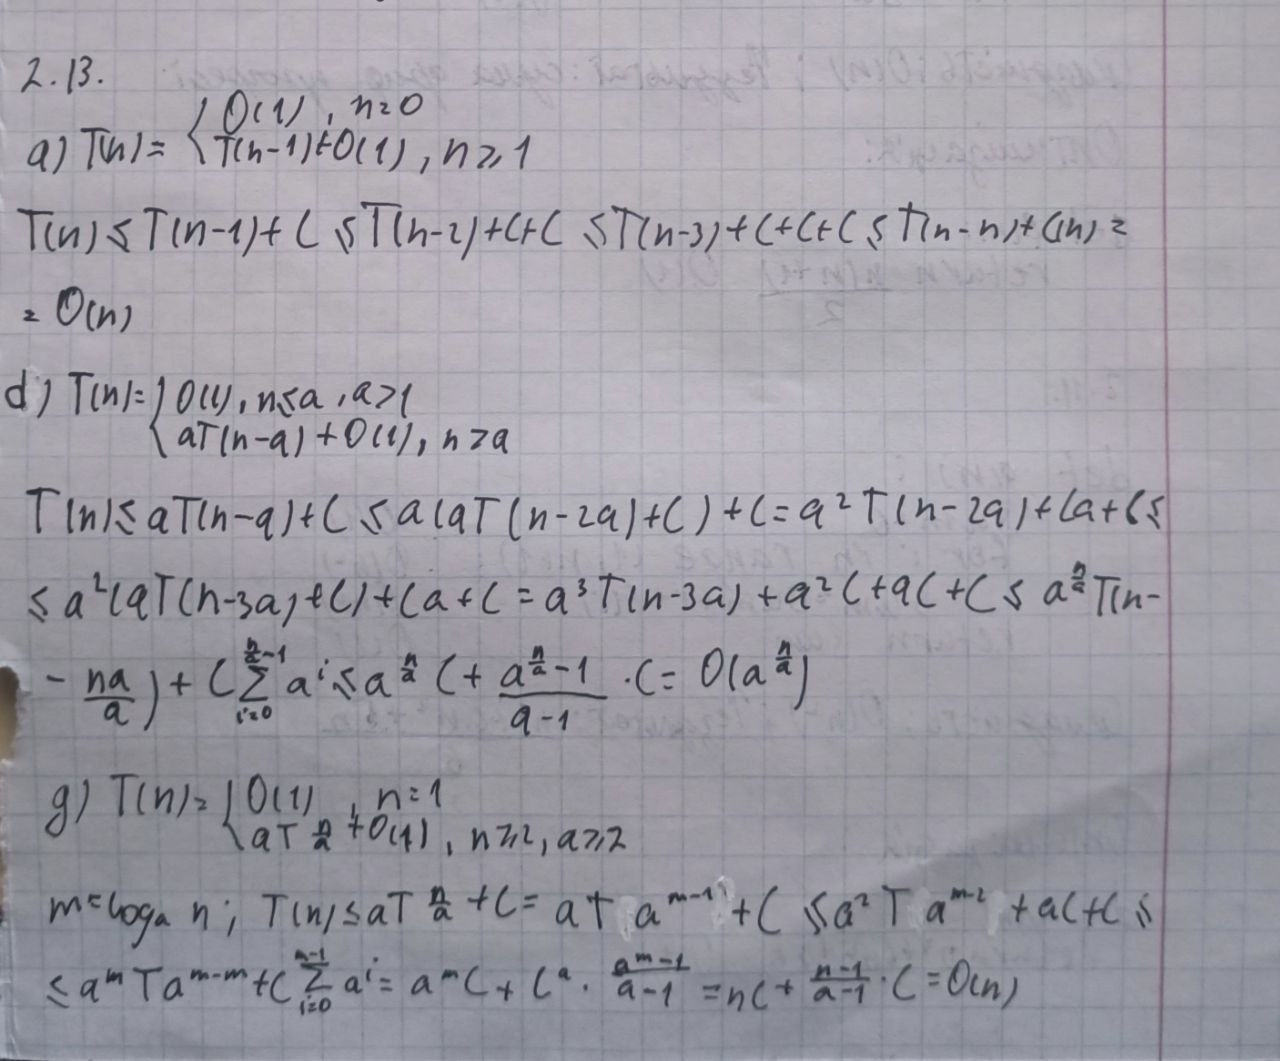 2.13.
a) T(n) = { O(1), n=0
T(n-1)+O(1), n⩾1
T(n) ⩽ T(n-1)+C ⩽ T(n-2)+C+C ⩽ T(n-3)+C+C+C ⩽ T(n-n)+C(n) =
= O(n)
d) T(n) = { O(1), n⩽a, a>1
aT(n-a)+O(1), n>a
T(n) ⩽ aT(n-a)+C ⩽ a(aT(n-2a)+C)+C = a²T(n-2a)+Ca+C ⩽
⩽ a²(aT(n-3a)+C)+Ca+C = a³T(n-3a)+a²C+aC+C ⩽ a^{n/a} T(n-
- na/a) + C ∑_{i=0}^{n/a-1} a^i ⩽ a^{n/a} C + (a^{n/a}-1)/(a-1) · C = O(a^{n/a})
g) T(n) = { O(1), n=1
aT n/a + O(1), n⩾2, a⩾2
m=log_a n; T(n) ⩽ aT n/a + C = aT a^{m-1} + C ⩽ a²T a^{m-2} + aC+C ⩽
⩽ a^m T a^{m-m} + C ∑_{i=0}^{m-1} a^i = a^m C + C^a · (a^m-1)/(a-1) = nC + (n-1)/(a-1) · C = O(n)